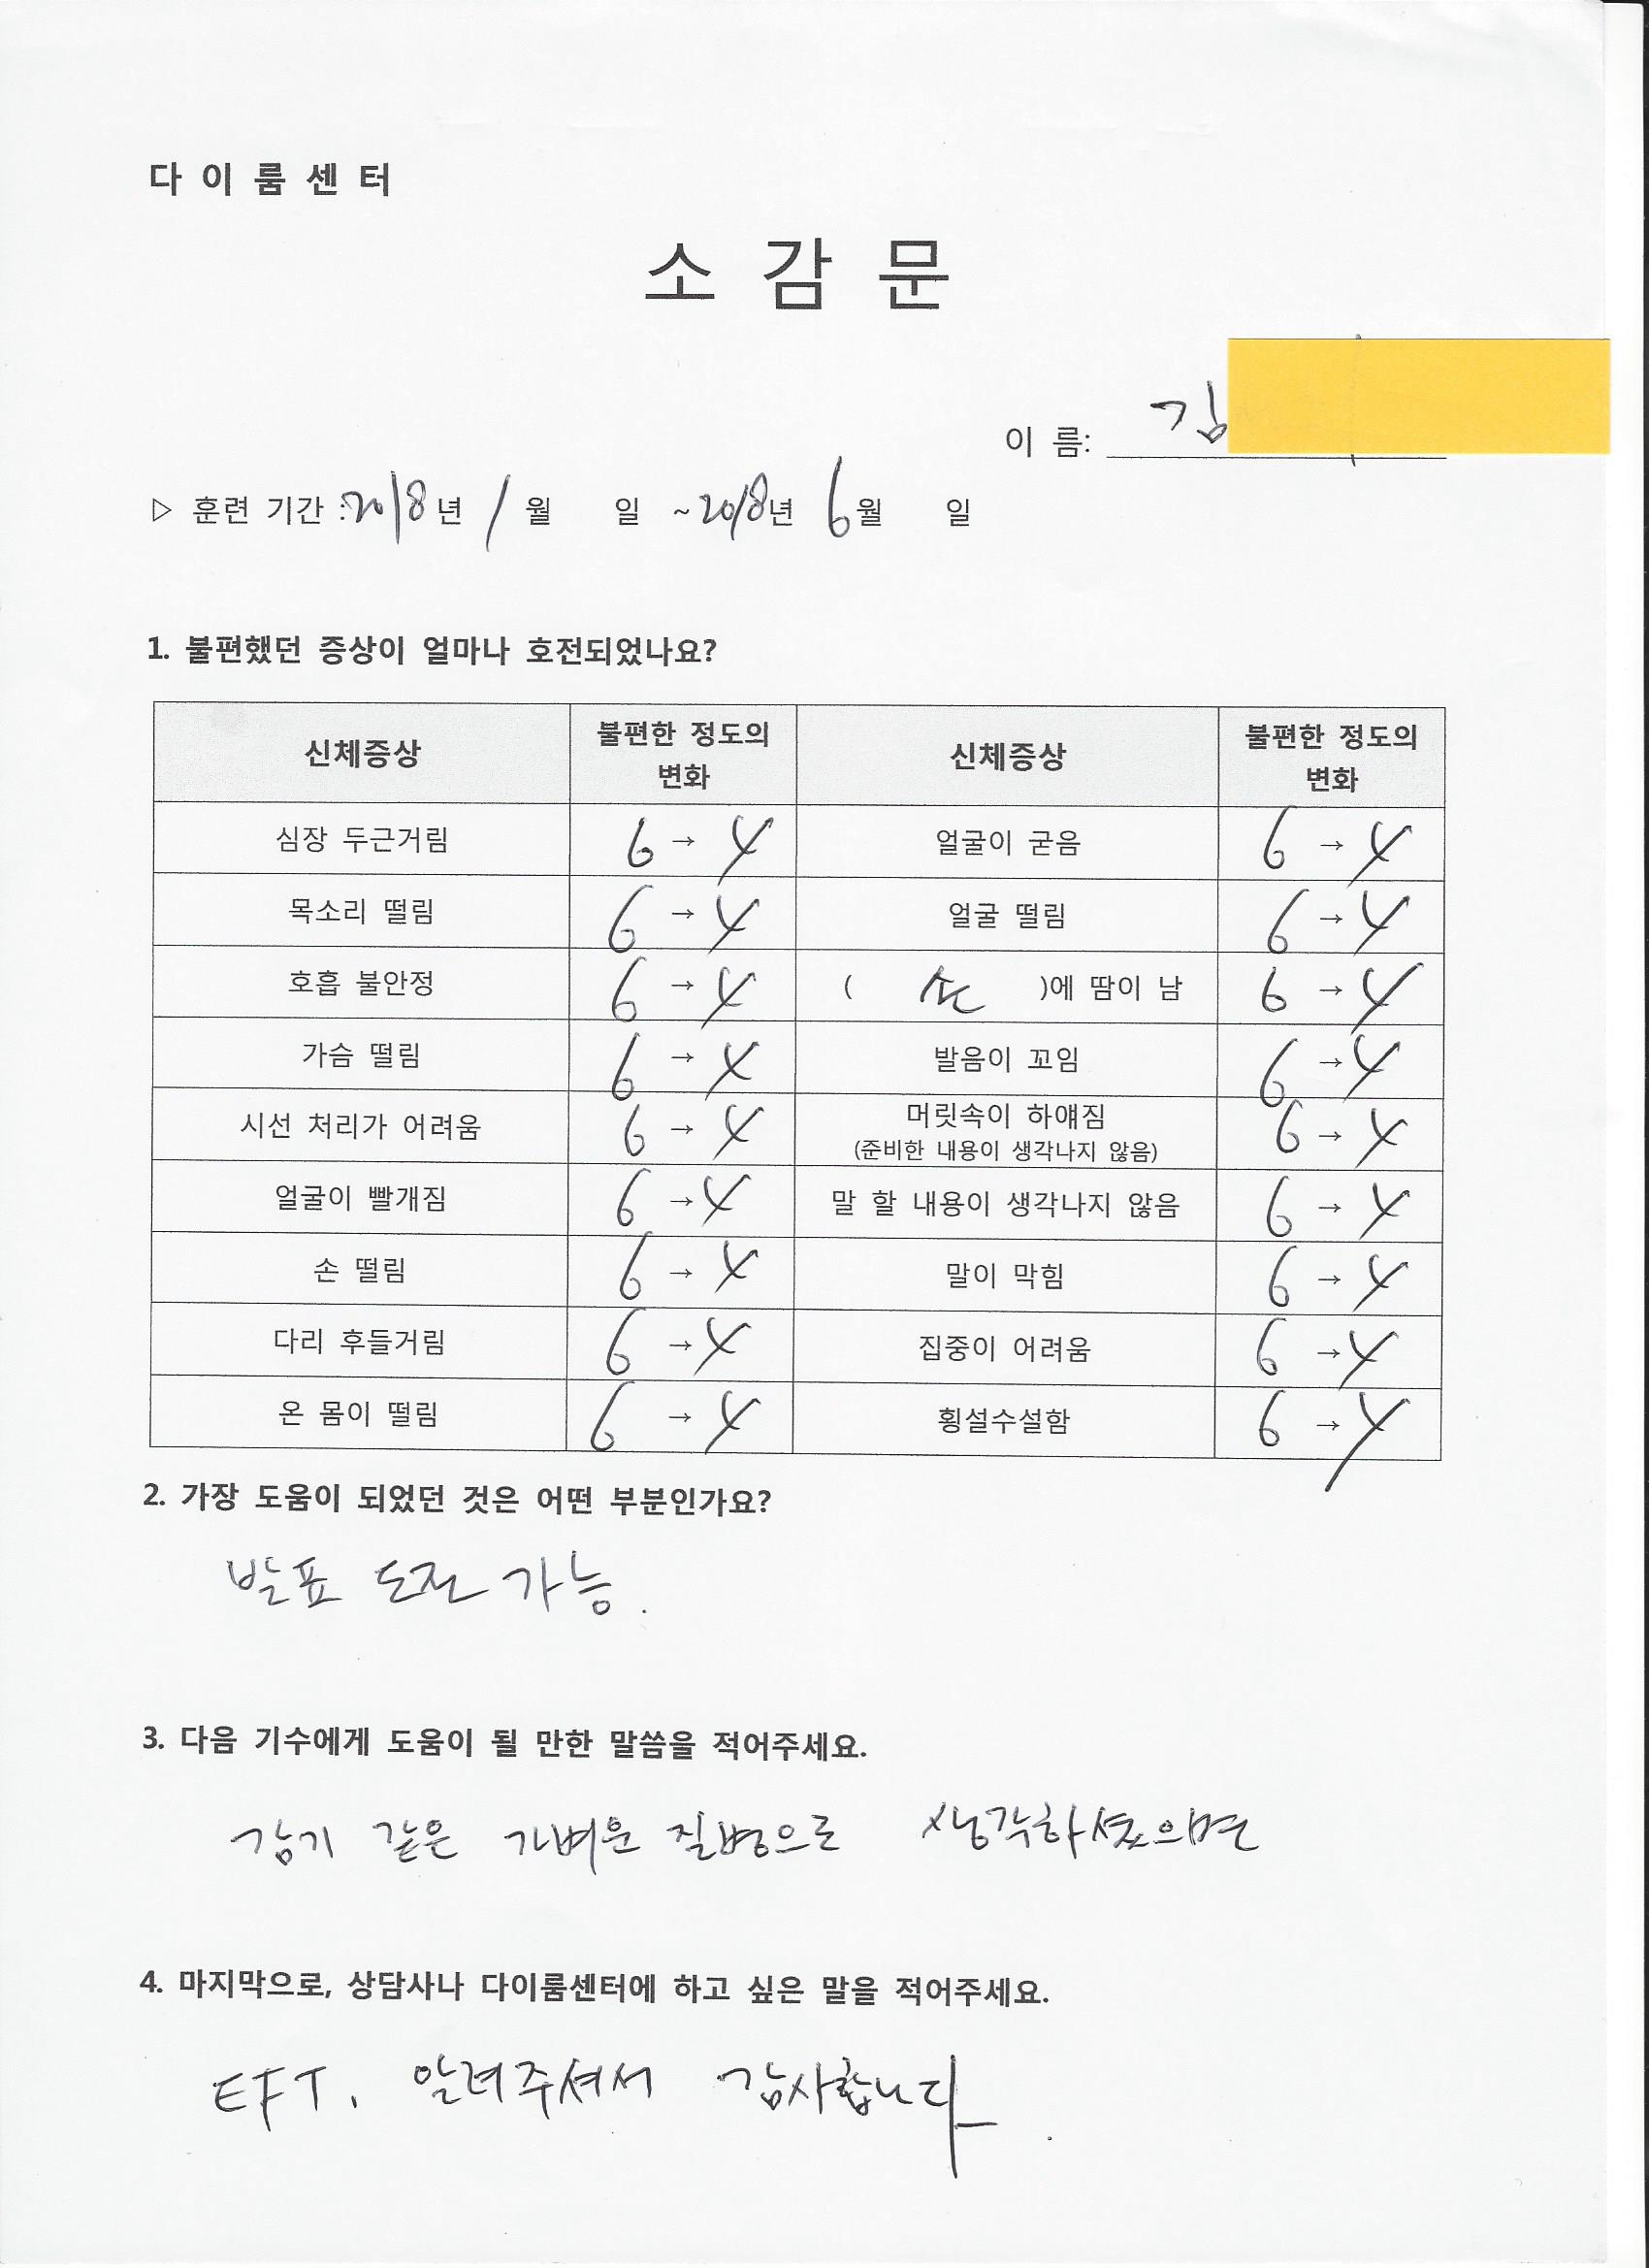 다이룸센터
소감문
이 름: 김
▷ 훈련 기간 : 2018년 1월 일 ~ 2018년 6월 일
1. 불편했던 증상이 얼마나 호전되었나요?
신체증상 불편한 정도의 변화 신체증상 불편한 정도의 변화
심장 두근거림 6 → 4 얼굴이 굳음 6 → 4
목소리 떨림 6 → 4 얼굴 떨림 6 → 4
호흡 불안정 6 → 4 ( 손 )에 땀이 남 6 → 4
가슴 떨림 6 → 4 발음이 꼬임 6 → 4
시선 처리가 어려움 6 → 4 머릿속이 하얘짐 (준비한 내용이 생각나지 않음) 6 → 4
얼굴이 빨개짐 6 → 4 말 할 내용이 생각나지 않음 6 → 4
손 떨림 6 → 4 말이 막힘 6 → 4
다리 후들거림 6 → 4 집중이 어려움 6 → 4
온 몸이 떨림 6 → 4 횡설수설함 6 → 4
2. 가장 도움이 되었던 것은 어떤 부분인가요?
발표 도전 가능.
3. 다음 기수에게 도움이 될 만한 말씀을 적어주세요.
감기 같은 가벼운 질병으로 생각하셨으면
4. 마지막으로, 상담사나 다이룸센터에 하고 싶은 말을 적어주세요.
EFT. 알려주셔서 감사합니다.